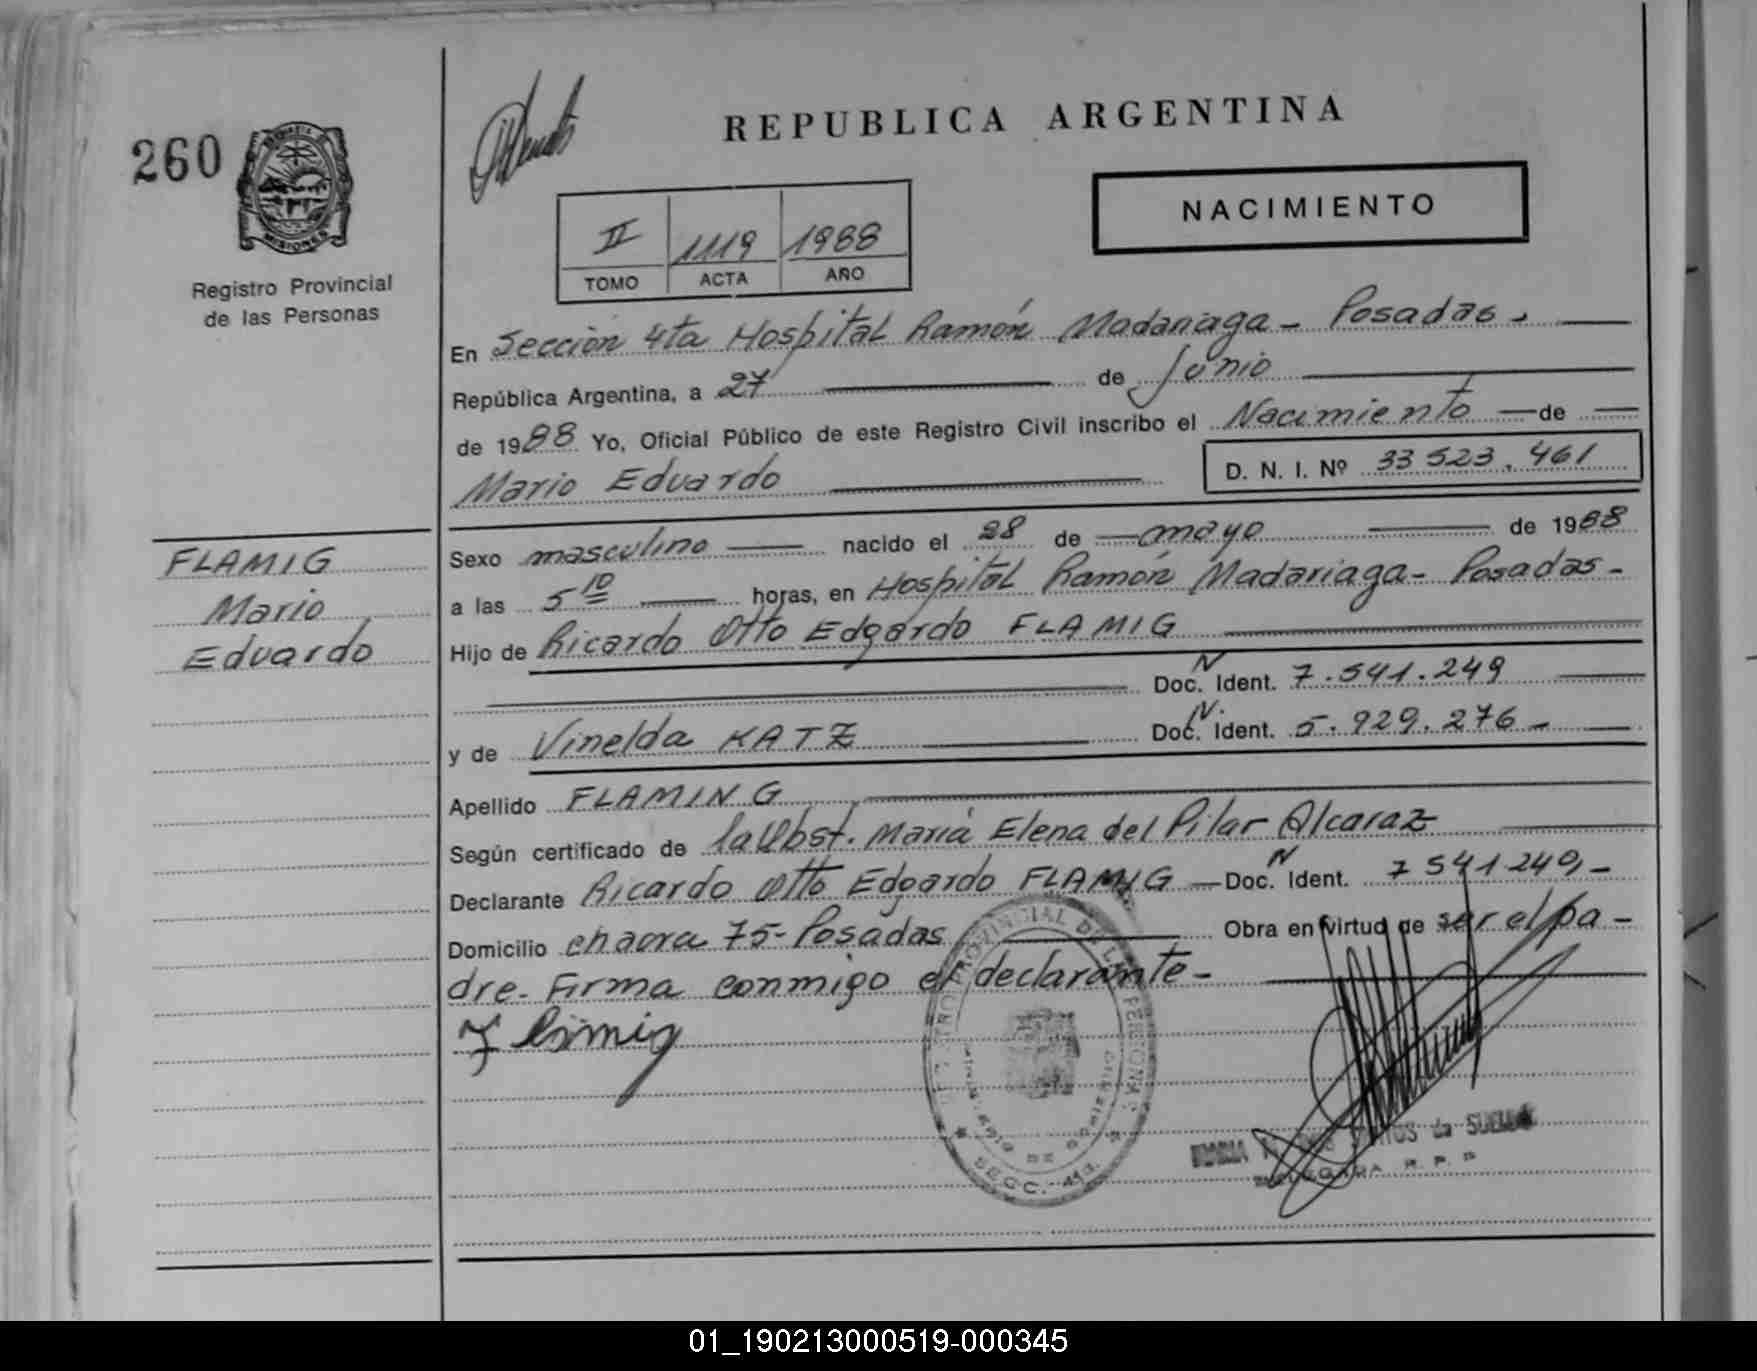 260
MISIONES
Registro Provincial
de las Personas
REPUBLICA ARGENTINA
NACIMIENTO
II 1119 1988
TOMO ACTA AÑO
En Sección 4ta Hospital Ramón Madariaga - Posadas.
República Argentina, a 27 de Junio
de 1988 Yo, Oficial Público de este Registro Civil inscribo el Nacimiento de
Mario Eduardo D. N. I. Nº 33 523.461
FLAMIG
Mario
Eduardo
Sexo masculino nacido el 28 de mayo de 1988
a las 5 10 horas, en Hospital Ramón Madariaga - Posadas -
Hijo de Ricardo Otto Edgardo FLAMIG
Doc. N Ident. 7.541.249
y de Vinelda KATZ Doc. N. Ident. 5.929.276 -
Apellido FLAMING
Según certificado de la Obst. María Elena del Pilar Alcaraz
Declarante Ricardo Otto Edgardo FLAMIG Doc. N Ident. 7 541 249, -
Domicilio chacra 75 - Posadas Obra en virtud de ser el pa -
dre - Firma conmigo el declarante -
Flamig
REGISTRO PROVINCIAL DE LAS PERSONAS
SECC. 4ta.
DELEGADA R. P. P.
01_190213000519-000345